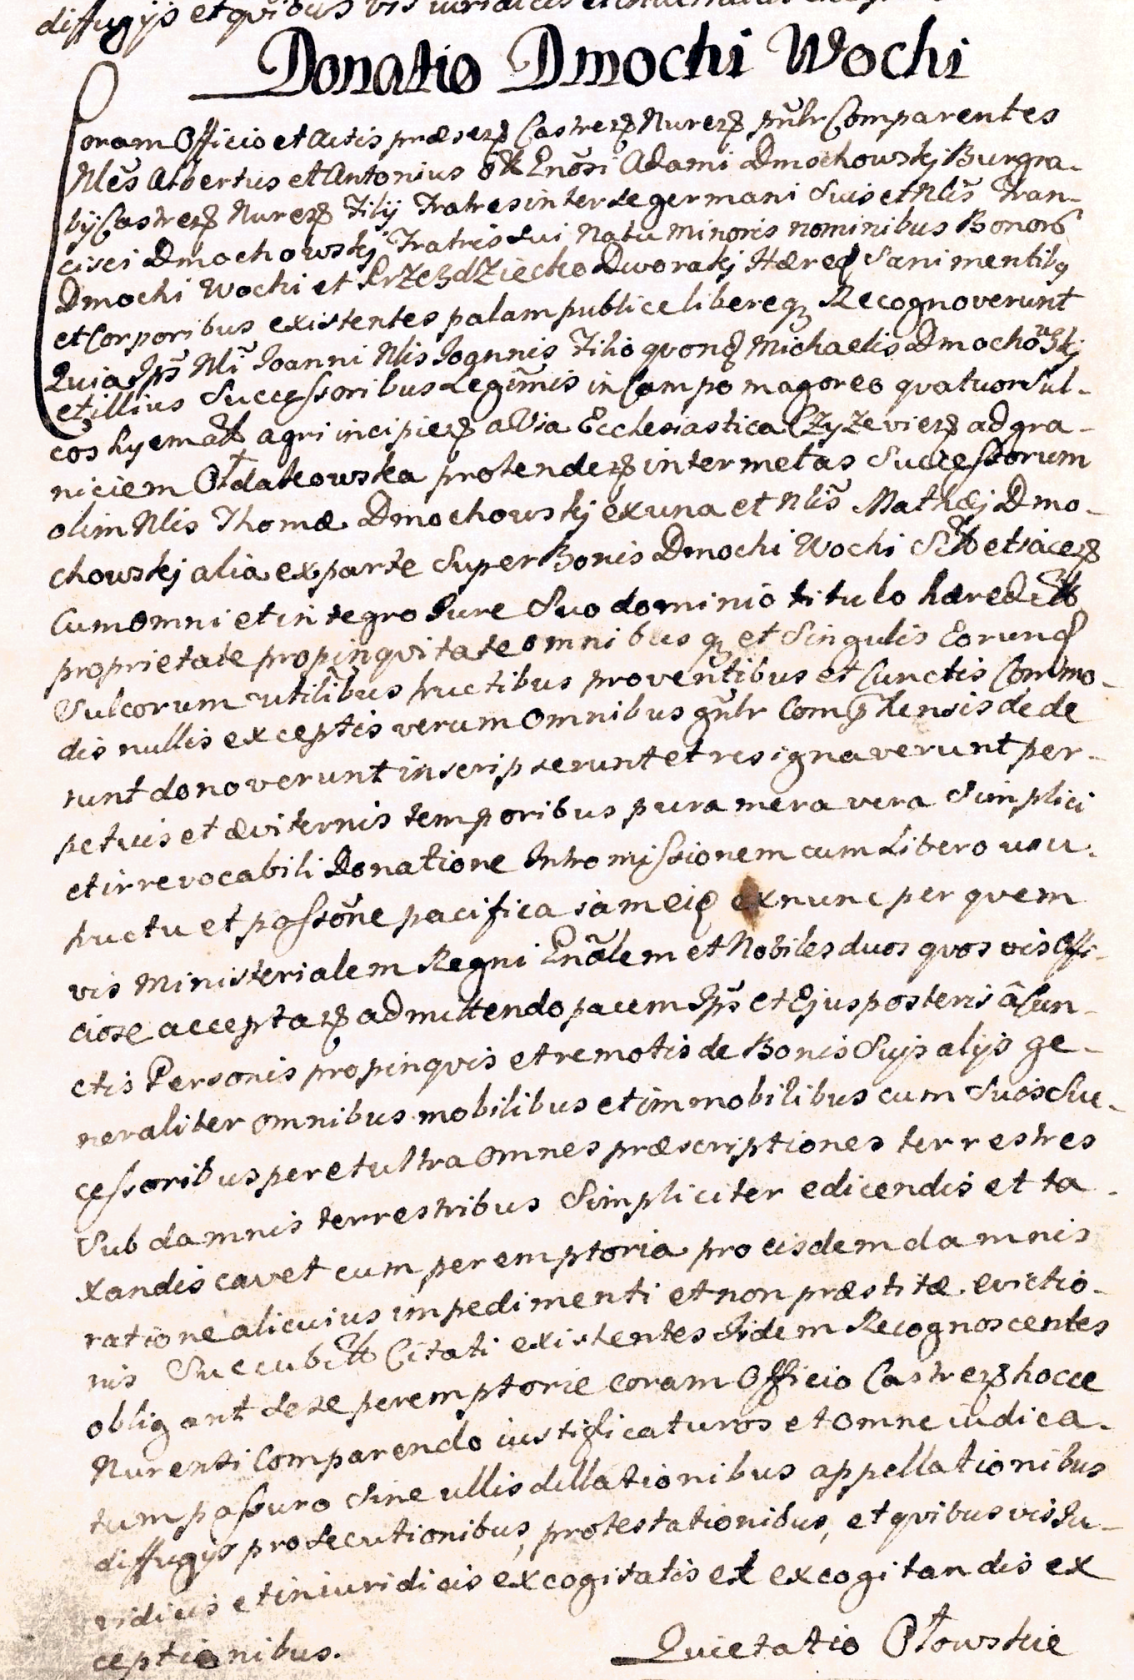 diffugijs et quibus vis iuridicis et
Donatio Dmochi Wochi
Coram Officio et Actis præsen Castren Nuren pnlr Comparentes
Nles Albertus et Antonius olim Gnosi Adami Dmochowskj Burgra-
bij Castren Nuren Filij Fratres inter se germani Suis et Nlis Fran-
cisci Dmochowskj Fratris Sui Natu minoris nominibus Bonor
Dmochi Wochi et Przezdziecko Dworakj Hæred Sani mentibq
et Corporibus existentes palam publice libereq Recognoverunt
Quia Ips Nli Joanni Nlis Joannis Filio quond Michaelis Dmochoskj
et illius Successoribus Legimis in Campo magoreo quatuor Sul-
cos hyemal agri incipien a Via Ecclesiastica Czyzevien ad gra-
niciem Ołdakowska protenden inter metas Successorum
olim Nlis Thomæ Dmochowskj ex una et Nlis Mathæj Dmo-
chowskj alia ex parte Super Bonis Dmochi Wochi Sit et iacen
Cum omni et integro Jure Suo dominio titulo hæredit
proprietate propinquitate omnibusq et Singulis Eorund
Sulcorum utilibus fructibus proventibus et Cunctis Commo-
dis nullis exceptis verum omnibus gnlr Comphensis dede
runt donoverunt inscripserunt et resignaverunt per-
petuis et æviternis temporibus pura mera vera Simplici
et irrevocabili Donatione Intromissionem cum Libero usu-
fructu et possone pacifica iam eiq ex nunc per quem
vis Ministerialem Regni Gnalem et Nobiles duos quos vis Offi-
ciose acceptan admittendo pacem Ips et Ejus posteris a Cun-
ctis Personis propinquis et remotis de Bonis Suis alijs ge-
neraliter omnibus mobilibus et immobilibus cum Suis Suc-
cessoribus per et ultra omnes præscriptiones terrestres
Sub damnis terrestribus Simpliciter edicendis et ta-
xandis cavet cum peremptoria pro eisdem damnis
ratione alicuius impedimenti et non præstitæ evictio-
nis Succubit Citati existentes Iidem Recognoscentes
obligant sese peremptorie coram Officio Castren hocce
Nurensi Comparendo iustificaturos et omne iudica-
tum passuro Sine ullis dillationibus appellationibus
diffugijs prosecutionibus, protestationibus, et quibus vis Ju-
ridicis et iniuridicis excogitatis et excogitandis ex
ceptionibus.
Quietatio Ołowskie